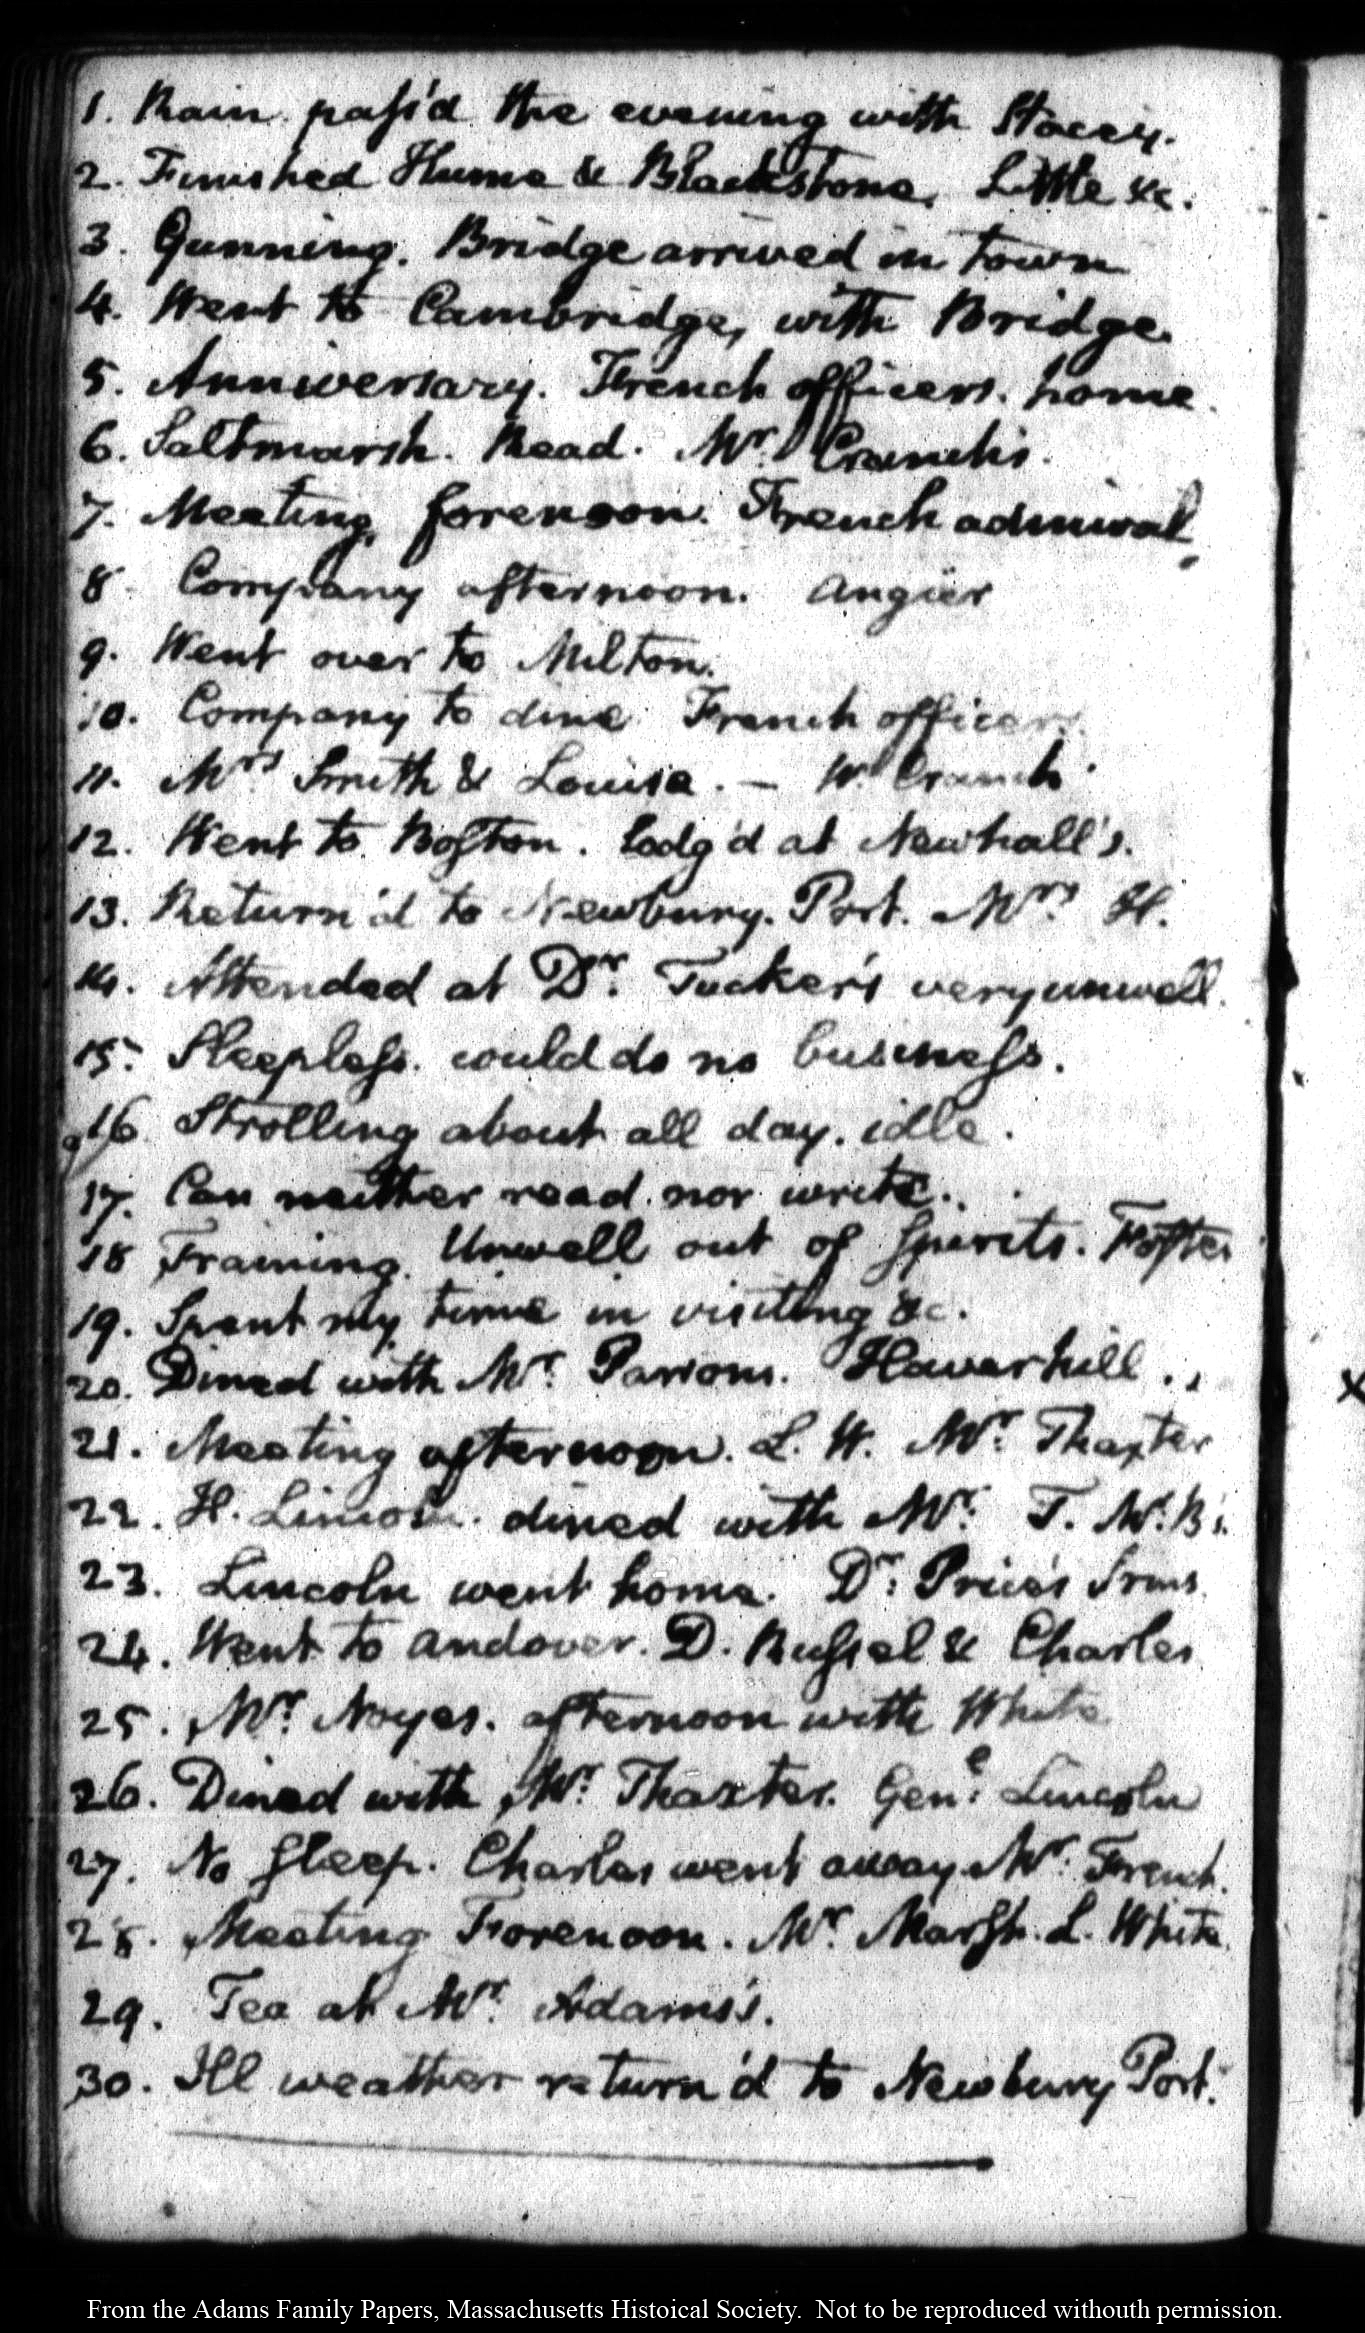 1. Rain. pass'd the evening with Stacey.
2. Finished Hume & Blackstone. Little &c.
3. Gunning. Bridge arrived in town
4. Went to Cambridge, with Bridge.
5. Anniversary. French officers. home.
6. Saltmarsh. Read. Mr. Cranch's.
7. Meeting, forenoon. French admiral.
8 Company afternoon. Angier
9. Went over to Milton.
10. Company to dine. French officers.
11. Mrs Smith & Louisa. — W. Cranch.
12. Went to Boston. Lodg'd at Newhall's.
13. Return'd to Newbury-Port. Mrs. H.
14. Attended at Dr. Tucker's very unwell.
15. Sleepless. could do no business.
16 Strolling about all day. idle.
17. Can neither read nor write.
18 Training. Unwell out of Spirits. Foster
19. Spent my time in visiting &c.
20. Dined with Mr. Parsons. Haverhill.
21. Meeting afternoon. L. W. Mr. Thaxter
22. H. Lincoln. dined with Mr. T. Mr. B's.
23. Lincoln went home. Dr. Price's Srms.
24. Went to Andover. D. Russel & Charles
25. Mr. Noyes. afternoon with White
26. Dined with Mr. Thaxter. Genl. Lincoln
27. No sleep. Charles went away. Mr. French.
28. Meeting Forenoon. Mr. Marsh. L. White.
29. Tea at Mr. Adams's.
30. Ill weather return'd to Newbury Port.
From the Adams Family Papers, Massachusetts Histoical Society. Not to be reproduced withouth permission.